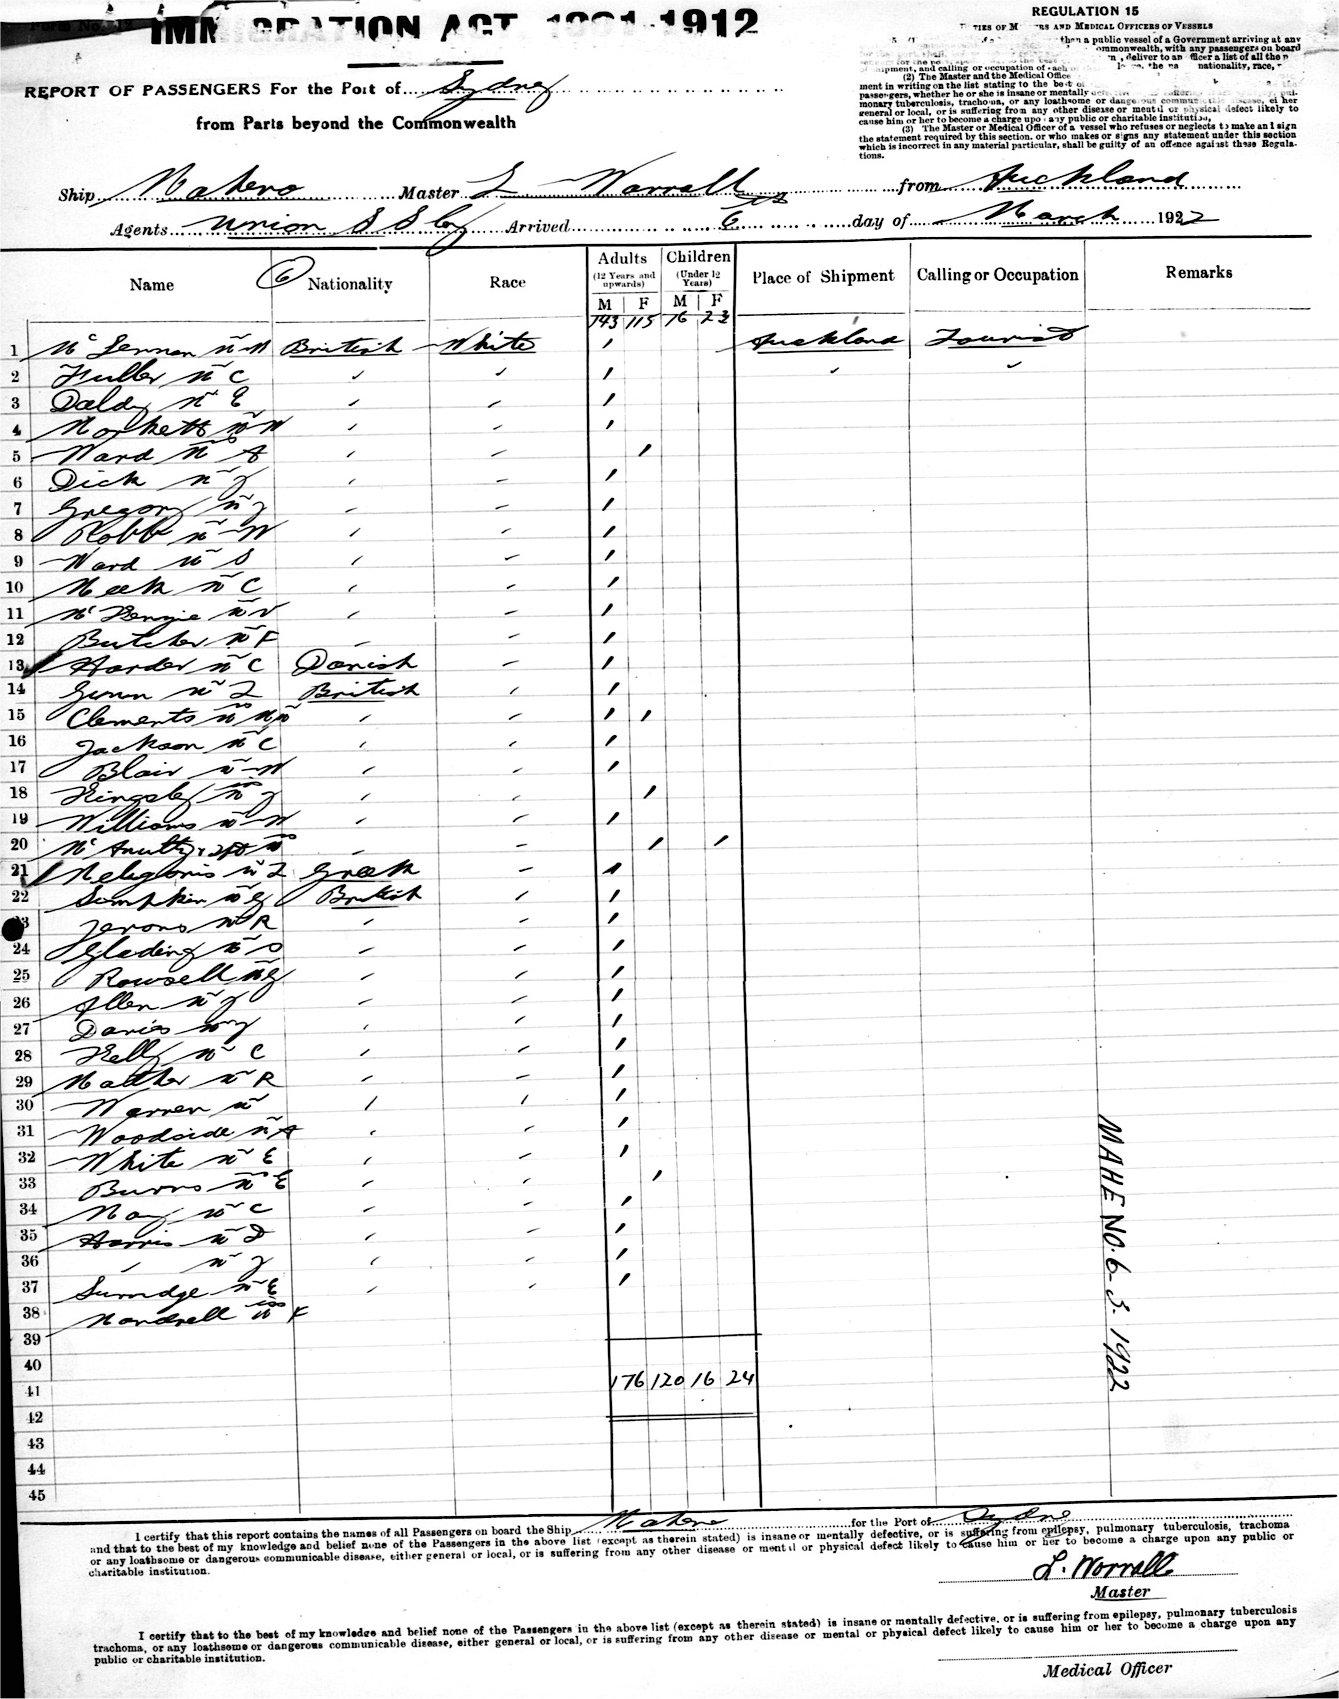 IMMIGRATION ACT 1901-1912
REPORT OF PASSENGERS For the Port of Sydney
from Parts beyond the Commonwealth
REGULATION 15
MEDICAL OFFICERS OF VESSELS
than a public vessel of a Government arriving at any
Commonwealth, with any passengers on board
deliver to an officer a list of all the
shipment, and calling or occupation of each nationality, race,
(2) The Master and the Medical Office
ment in writing on the list stating to the best
passengers, whether he or she is insane or mentally
monary tuberculosis, trachoma, or any loathsome or dangerous communicable disease, either
general or local, or is suffering from any other disease or mental or physical defect likely to
cause him or her to become a charge upon any public or charitable institution,
(3) The Master or Medical Officer of a vessel who refuses or neglects to make and sign
the statement required by this section, or who makes or signs any statement under this section
which is incorrect in any material particular, shall be guilty of an offence against these Regula-
tions.
Ship Maheno Master L Worrall from Auckland
Agents Union S S Coy Arrived 6th day of March 1922
Name 6 Nationality Race Adults (12 Years and upwards) M F Children (Under 12 Years) M F Place of Shipment Calling or Occupation Remarks
143 115 16 23
1 McLennan Mr W British White / Auckland Tourist
2 Fuller Mr C
3 Daldy Mr E
4 Mr W
5 Ward A
6 Dick Mr J
7 Gregory Mr J
8 Robb Mr W
9 Ward Mr S
10 Meek Mr C
11 McKenzie Mr V
12 Butcher Mr F
13 Harder Mr C Danish
14 Gunn Mr L British
15 Clements Mr
16 Jackson Mr C
17 Blair Mr W
18 Kingsley J
19 Williams Mr W
20
21 Mr L Greek
22 Mr G British
23 Mr R
24 Glading Mr S
25 Rowsell Mr G
26 Allen Mr J
27 Davies Mr J
28 Kelly Mr C
29 Mather Mr R
30 Warren Mr
31 Woodside Mr A
32 White Mr E
33 Burns E
34 May Mr C
35 Harris Mr D
36 " Mr J
37 Surridge Mr E
38 Miss K
39
40
176 120 16 24
41
42
43
44
45
MAHENO. 6-3-1922
I certify that this report contains the names of all Passengers on board the Ship Maheno for the Port of Sydney
and that to the best of my knowledge and belief none of the Passengers in the above list (except as therein stated) is insane or mentally defective, or is suffering from epilepsy, pulmonary tuberculosis, trachoma
or any loathsome or dangerous communicable disease, either general or local, or is suffering from any other disease or mental or physical defect likely to cause him or her to become a charge upon any public or
charitable institution.
L. Worrall
Master
I certify that to the best of my knowledge and belief none of the Passengers in the above list (except as therein stated) is insane or mentally defective, or is suffering from epilepsy, pulmonary tuberculosis
trachoma, or any loathsome or dangerous communicable disease, either general or local, or is suffering from any other disease or mental or physical defect likely to cause him or her to become a charge upon any
public or charitable institution.
Medical Officer